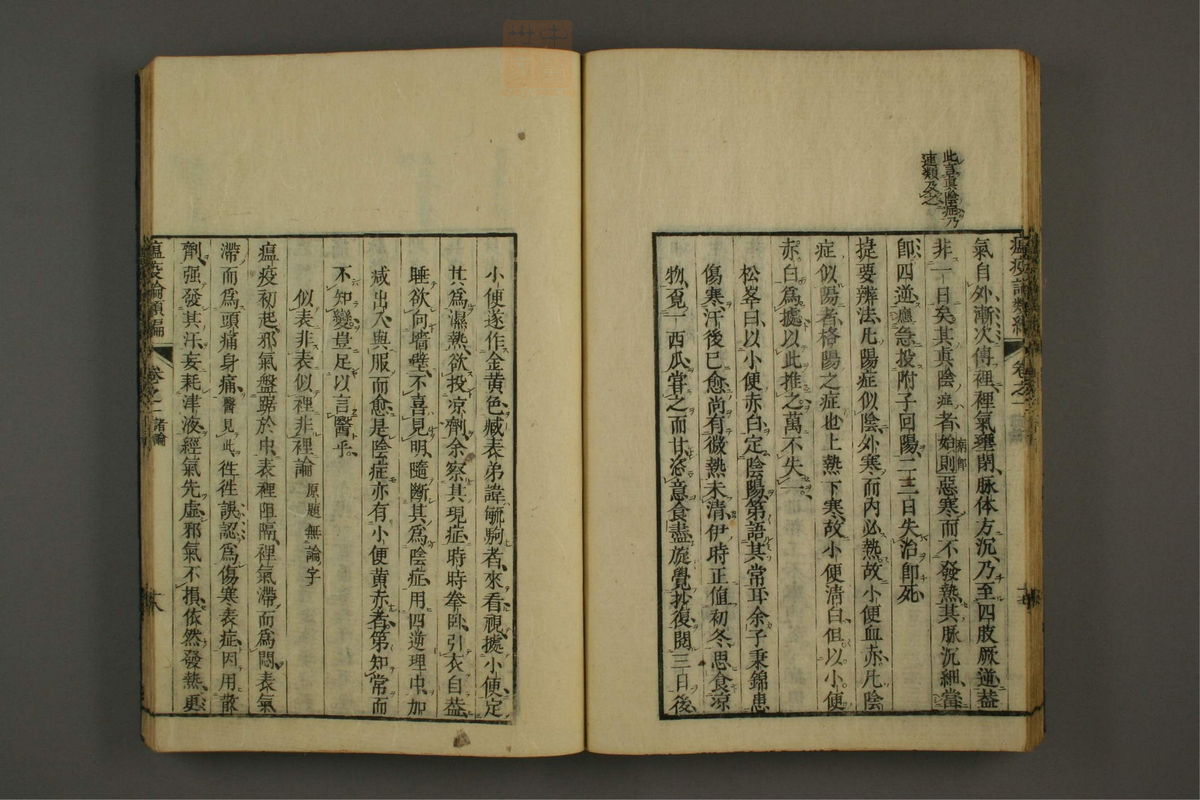 此言眞陰症乃
連類及之
氣自外漸次傳裡裡氣壅閉脉体方沉乃至四肢厥逆蓋
非一日矣其眞陰症者始則惡寒而不發熱其脉沉細當
即四逆應急投附子回陽二三日失治即死
掟要辨法凡陽症似陰外寒而内必熱故小便血赤凡陰
症似陽者格陽之症也上熱下寒故小便清白但以小便
赤白爲據以此推之萬不失一
松峯曰以小便赤白定陰陽第語其常耳余子秉錦患
傷寒汗後已愈尚有微熱未清伊時正値初冬思食凉
物覔一西瓜嘗之而甘恣意食盡旋覺抄復閲三日後
小便遂作金黄色臧表弟諱毓駒者來看視據小便定
其爲濕熱欲投凉劑余察其現症時時拳卧引衣自蓋
睡欲向墻壁不喜見明隨斷其爲陰症用四逆理中加
减出入與服而愈是陰症亦有小便黄赤者第知常而
不知變豈足以言醫乎
似表非表似裡非裡論 原題無論字
瘟疫初起邪氣盤踞於中表裡阻隔裡氣滯而爲悶表氣
滯而爲頭痛身痛醫見此徃徃誤認爲傷寒表症因用散
劑强發其汗妄耗津液經氣先虛邪氣不損依然發熱更
瘟疫論類編 卷之一 諸論 十八